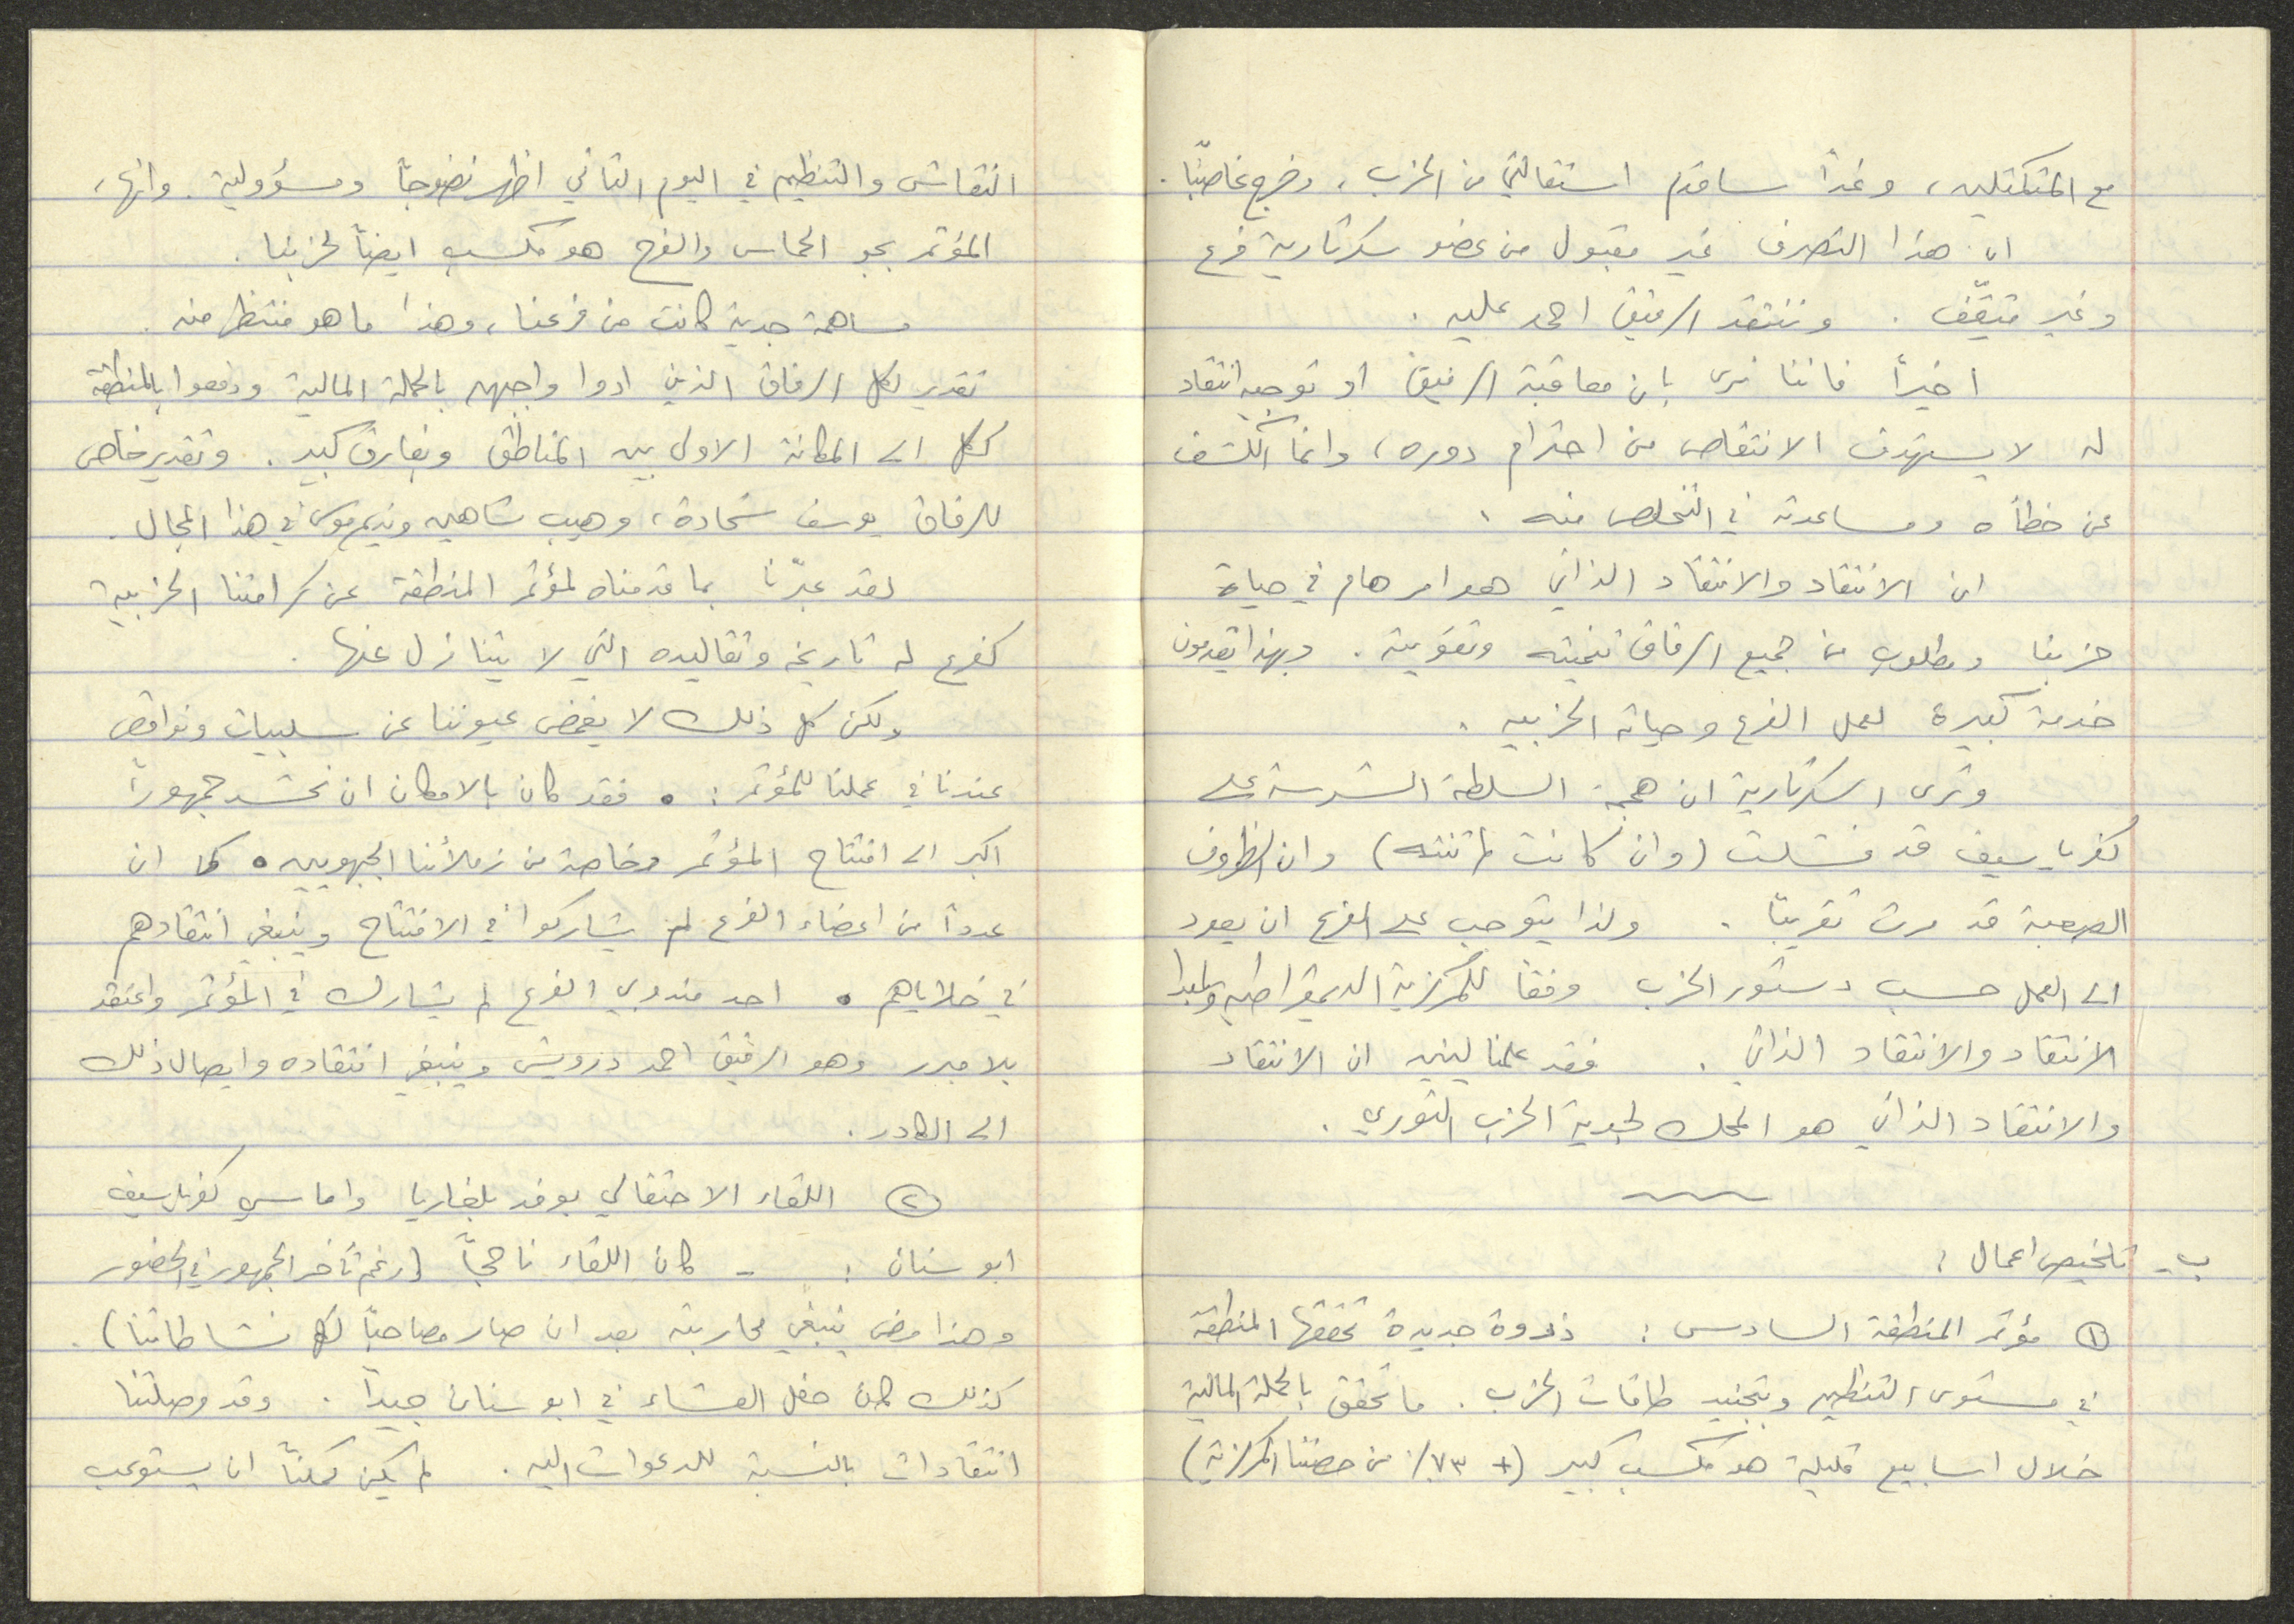 مع المتكتلين، وغداً ساقدم استقالتي من الحزب، وخرج غاضبًا.
ان هذا التصرف غير مقبول من عضو سكرتارية فرع
وغير مثقّف. وننتقد الرفيق احمد عليه.
اخيراً فاننا نرى بان معاقبة الرفيق او توجيه انتقاد
له لا يستهدف الانتقاص من احترام دوره، وانما الكشف
عن خطأه ومساعدته في التخلص منه.
ان الانتقاد والانتقاد الذاتي هو امر هام في حياة
حزبنا ومطلوب من جميع الرفاق تنميته وتقويته. وبهذا يقدمون
خدمة كبيرة لعمل الفرع وحياته الحزبيه.
وترى السكرتارية ان هجمة السلطة الشرسة على
كفرياسيف قد فشلت (وان كانت لم تنته) وان الظروف
الصعبة قد مرت تقريبًا. ولذا يتوجب على الفرع ان يعود
الى العمل حسب دستور الحزب وفقاً للمركزية الديمقراطيه ولمبدا
الانتقاد والانتقاد الذاتي. فقد علمنا لينين ان الانتقاد
والانتقاد الذاتي هو المحك لجدية الحزب الثوري.
ب- تلخيص اعمال:
① مؤتمر المنطقة السادس: ذروة جديدة تحققها المنطقة
في مستوى التنظيم وتجنيد طاقات الحزب. ما تحقق بالحملة المالية
خلال اسابيع قليلة هو مكسب كبير (+ ٧٣٪ من حصتنا المركزية)
النقاش والتنظيم في اليوم الثاني اظهر نضوجاً ومسؤولية. وانهاء
المؤتمر بجو الحماس والفرح هو مكسب ايضاً لحزبنا.
مساهمة جدية كانت من فرعنا، وهذا ما هو منتظر منه.
تقدير لكل الرفاق الذين ادوا واجبهم بالحملة المالية ودفعوا بالمنطقة
ككل الى المكانة الاولى بين المناطق وبفارق كبير. وتقدير خاص
للرفاق يوسف شحادة، وهيب شاهين ونديم موسى في هذا المجال.
لقد عبّرنا بما قدمناه لمؤتمر المنطقة عن كرامتنا الحزبية
كفرع له تاريخه وتقاليده التي لا يتنازل عنها.
ولكن كل ذلك لا يغمض عيوننا عن سلبيات ونواقص
عندنا في عملنا للمؤتمر: • فقد كان بالامكان ان نحشد جمهوراً
اكبر الى افتتاح المؤتمر وخاصة من زملائنا الجبهويين • كما ان
عدداً من اعضاء الفرع لم يشاركوا في الافتتاح وينبغي انتقادهم
في خلاياهم • احد مندوبي الفرع لم يشارك في المؤتمر واعتقد
بلا مبرر وهو الرفيق احمد درويش وينبغي انتقاده وايصال ذلك
الى الكادر.
② اللقاء الاحتفالي بوفد بلغاريا واماسي كفرياسيف
ابو سنان: - كان اللقاء ناجحاً (رغم تأخر الجمهور في الحضور
وهذا مرض ينبغي محاربته بعد ان صار مصاحبًا لكل نشاطاتنا).
كذلك كان حفل العشاء في ابو سنان جيداً. وقد وصلتنا
انتقادات بالنسبة للدعوات اليه. لم يكن ممكناً ان يستوعب